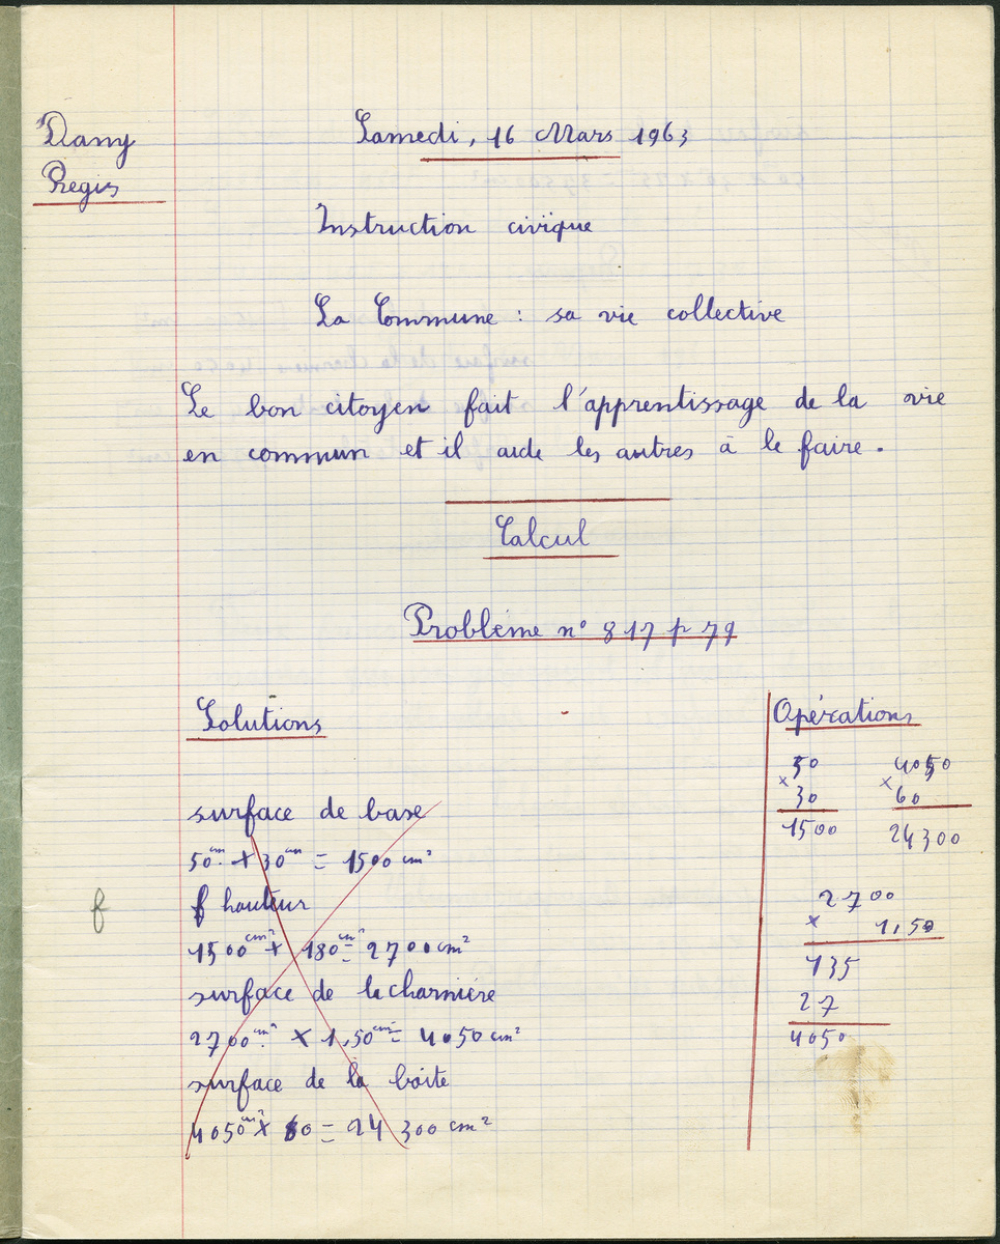 Dany
Regis
Samedi, 16 Mars 1963
Instruction civïque
La Commune : sa vie collective
Le bon citoyen fait l'apprentissage de la vie
en commun et il aide les autres à le faire.
Calcul
Problème n° 817 p 79
Solutions
surface de base
50cm × 30cm = 1500 cm²
f hauteur
f
1500cm² × 180cm = 2700cm²
surface de la charnière
2700cm² × 1,50cm = 4050 cm²
surface de la boite
4050cm² × 60 = 24 300 cm²
Opérations
50
× 30
1500
4050
× 60
24300
2700
× 1,50
135
27
4050